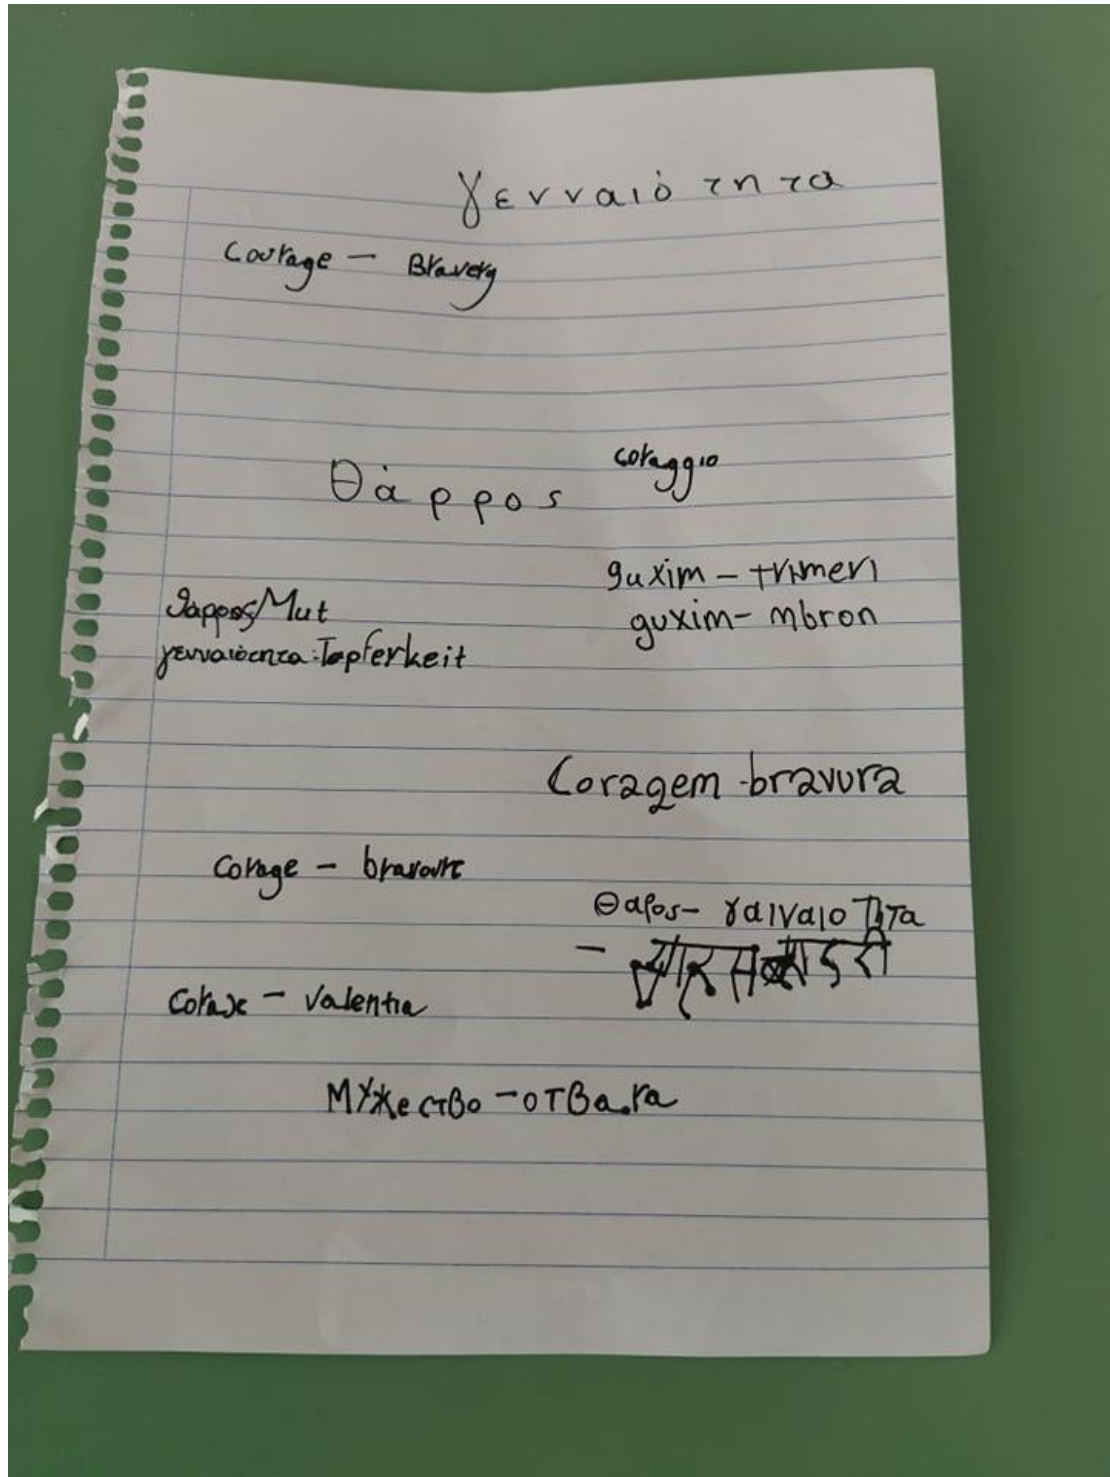 γενναιότητα
Courage - Bravery
Θάρρος
coraggio
guxim - trimeri
guxim - mbron
θάρρος Mut
γενναιότητα: Tapferkeit
Coragem - bravura
Corage - bravoure
Θαρος - γαιναιοτητα
-
Coraje - Valentia
Мужество - отвага